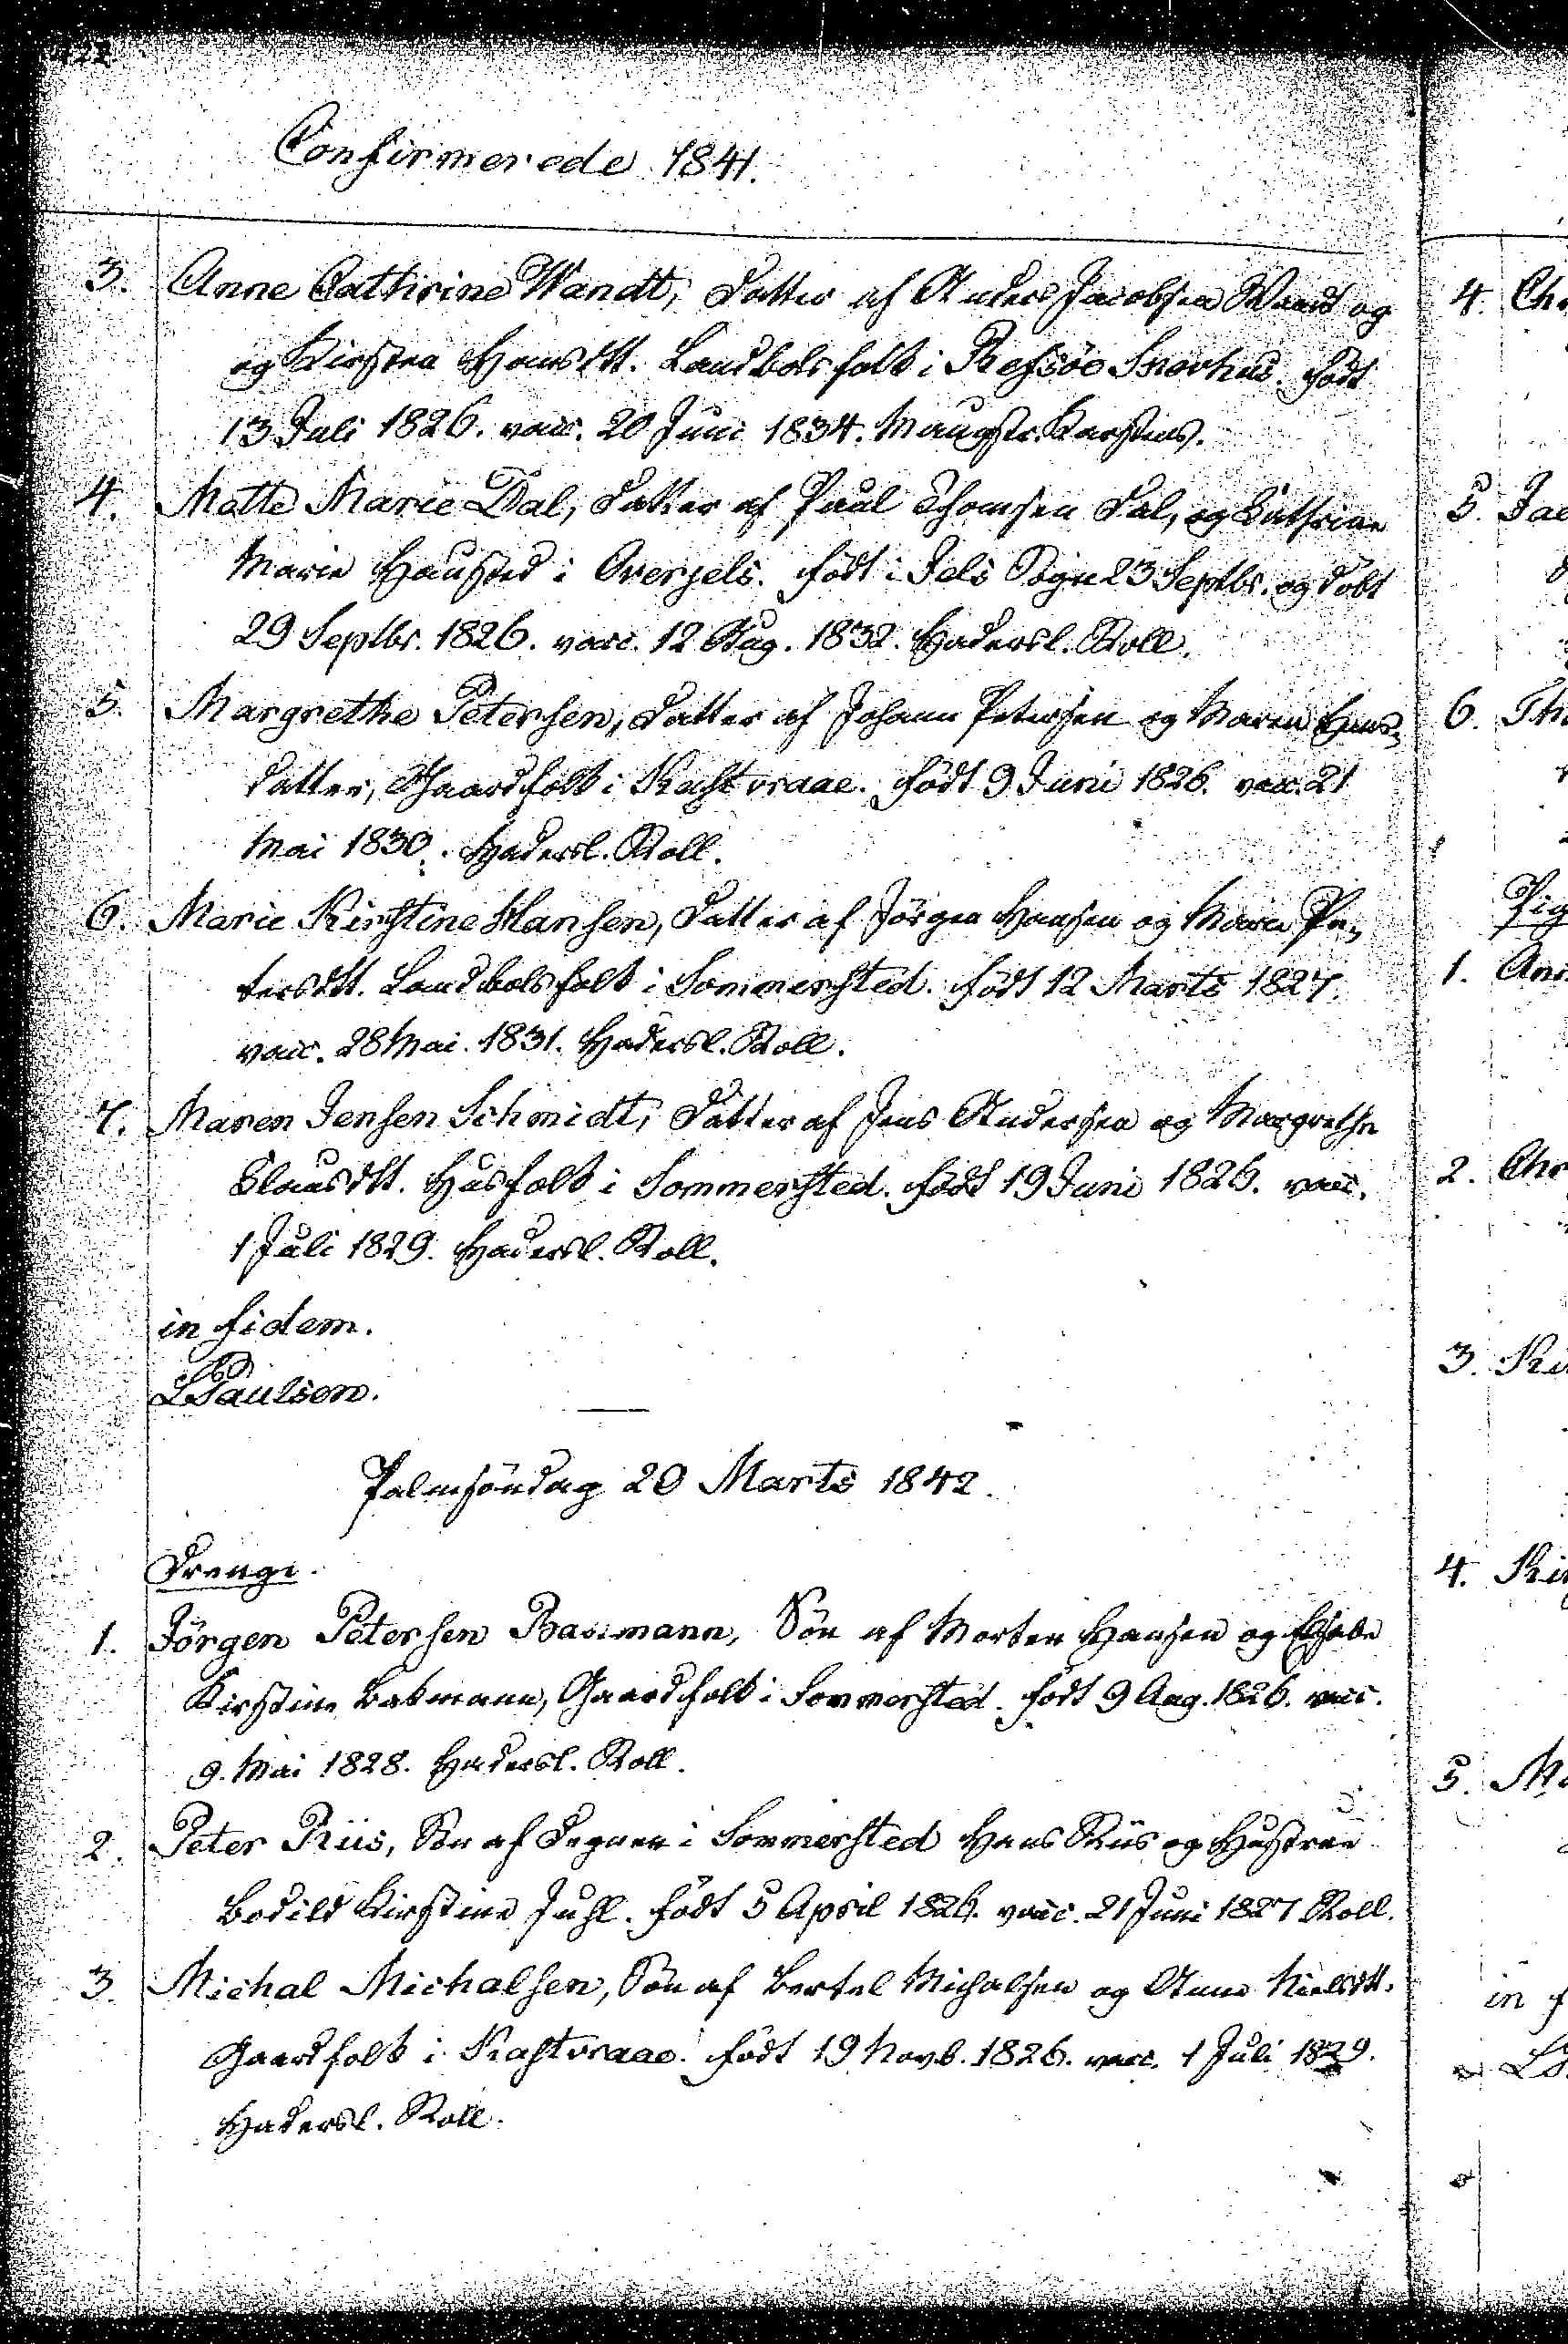 Confirmerede 1841.
3. Anne Cathrine Wandt, Datter af Anders Jacobsen Wandt og
og Kirsten Hansdtt. Landbolsfolk i Refsöe Skovhus. født
13 Juli 1826. vacc. 20 Juni 1834. Karstens.
4. Mette Marie Dal, Datter af Paul Thomsen Dal, og Cathrine
Marie Hausted i Overjels. født i Jels Sogn 23 Septbr. og döbt
29 Septbr. 1826. vacc. 12 Aug. 1832. Hadersl. Roll.
5. Margrethe Petersen, Datter af Johann Petersen og Maren Hans-
datter, Gaardfolk i Kastvraae. født 9 Juni 1826. vacc. 21
Mai 1830. Hadersl. Roll.
6. Marie Kirstine Hansen, Datter af Jörgen Hansen og Maren Pe-
tersdtt. Landbolsfolk i Sommersted. født 12 Marts 1827.
vacc. 28 Mai. 1831. Hadersl. Roll.
7. Maren Jensen Schmidt, Datter af Jens Andersen og Margrethe
Clausdtt. Husfolk i Sommersted. født 19 Juni 1826. vacc.
1 Juli 1829. Hadersl. Roll.
in fidem.
LPaulsen.
Palmsöndag 20 Marts 1842.
Drenge.
1. Jörgen Petersen Bassmann, Sön af Morten Hansen og Elsabe
Kirstine Basmann, Gaardfolk i Sommersted. født 9 Aug. 1826. vacc.
9. Mai 1828. Hadersl. Roll.
2. Peter Riis, Sön af Degnen i Sommersted Hans Riis og Hustrue
Bodild Kirstine Juhl. født 5 April 1826. vacc. 21 Juni 1827 Roll.
3. Michal Michalsen, Sön af Bertel Michalsen og Anne Nielsdtt.
Gaardfolk i Kastvraae. født 19 Novb. 1826. vacc. 1 Juli 1829.
Hadersl. Roll.
4. Chr
5. Jac
6. Th
Pig
1. Ann
2. Chr
3. Ki
4. Ki
5. M
in f